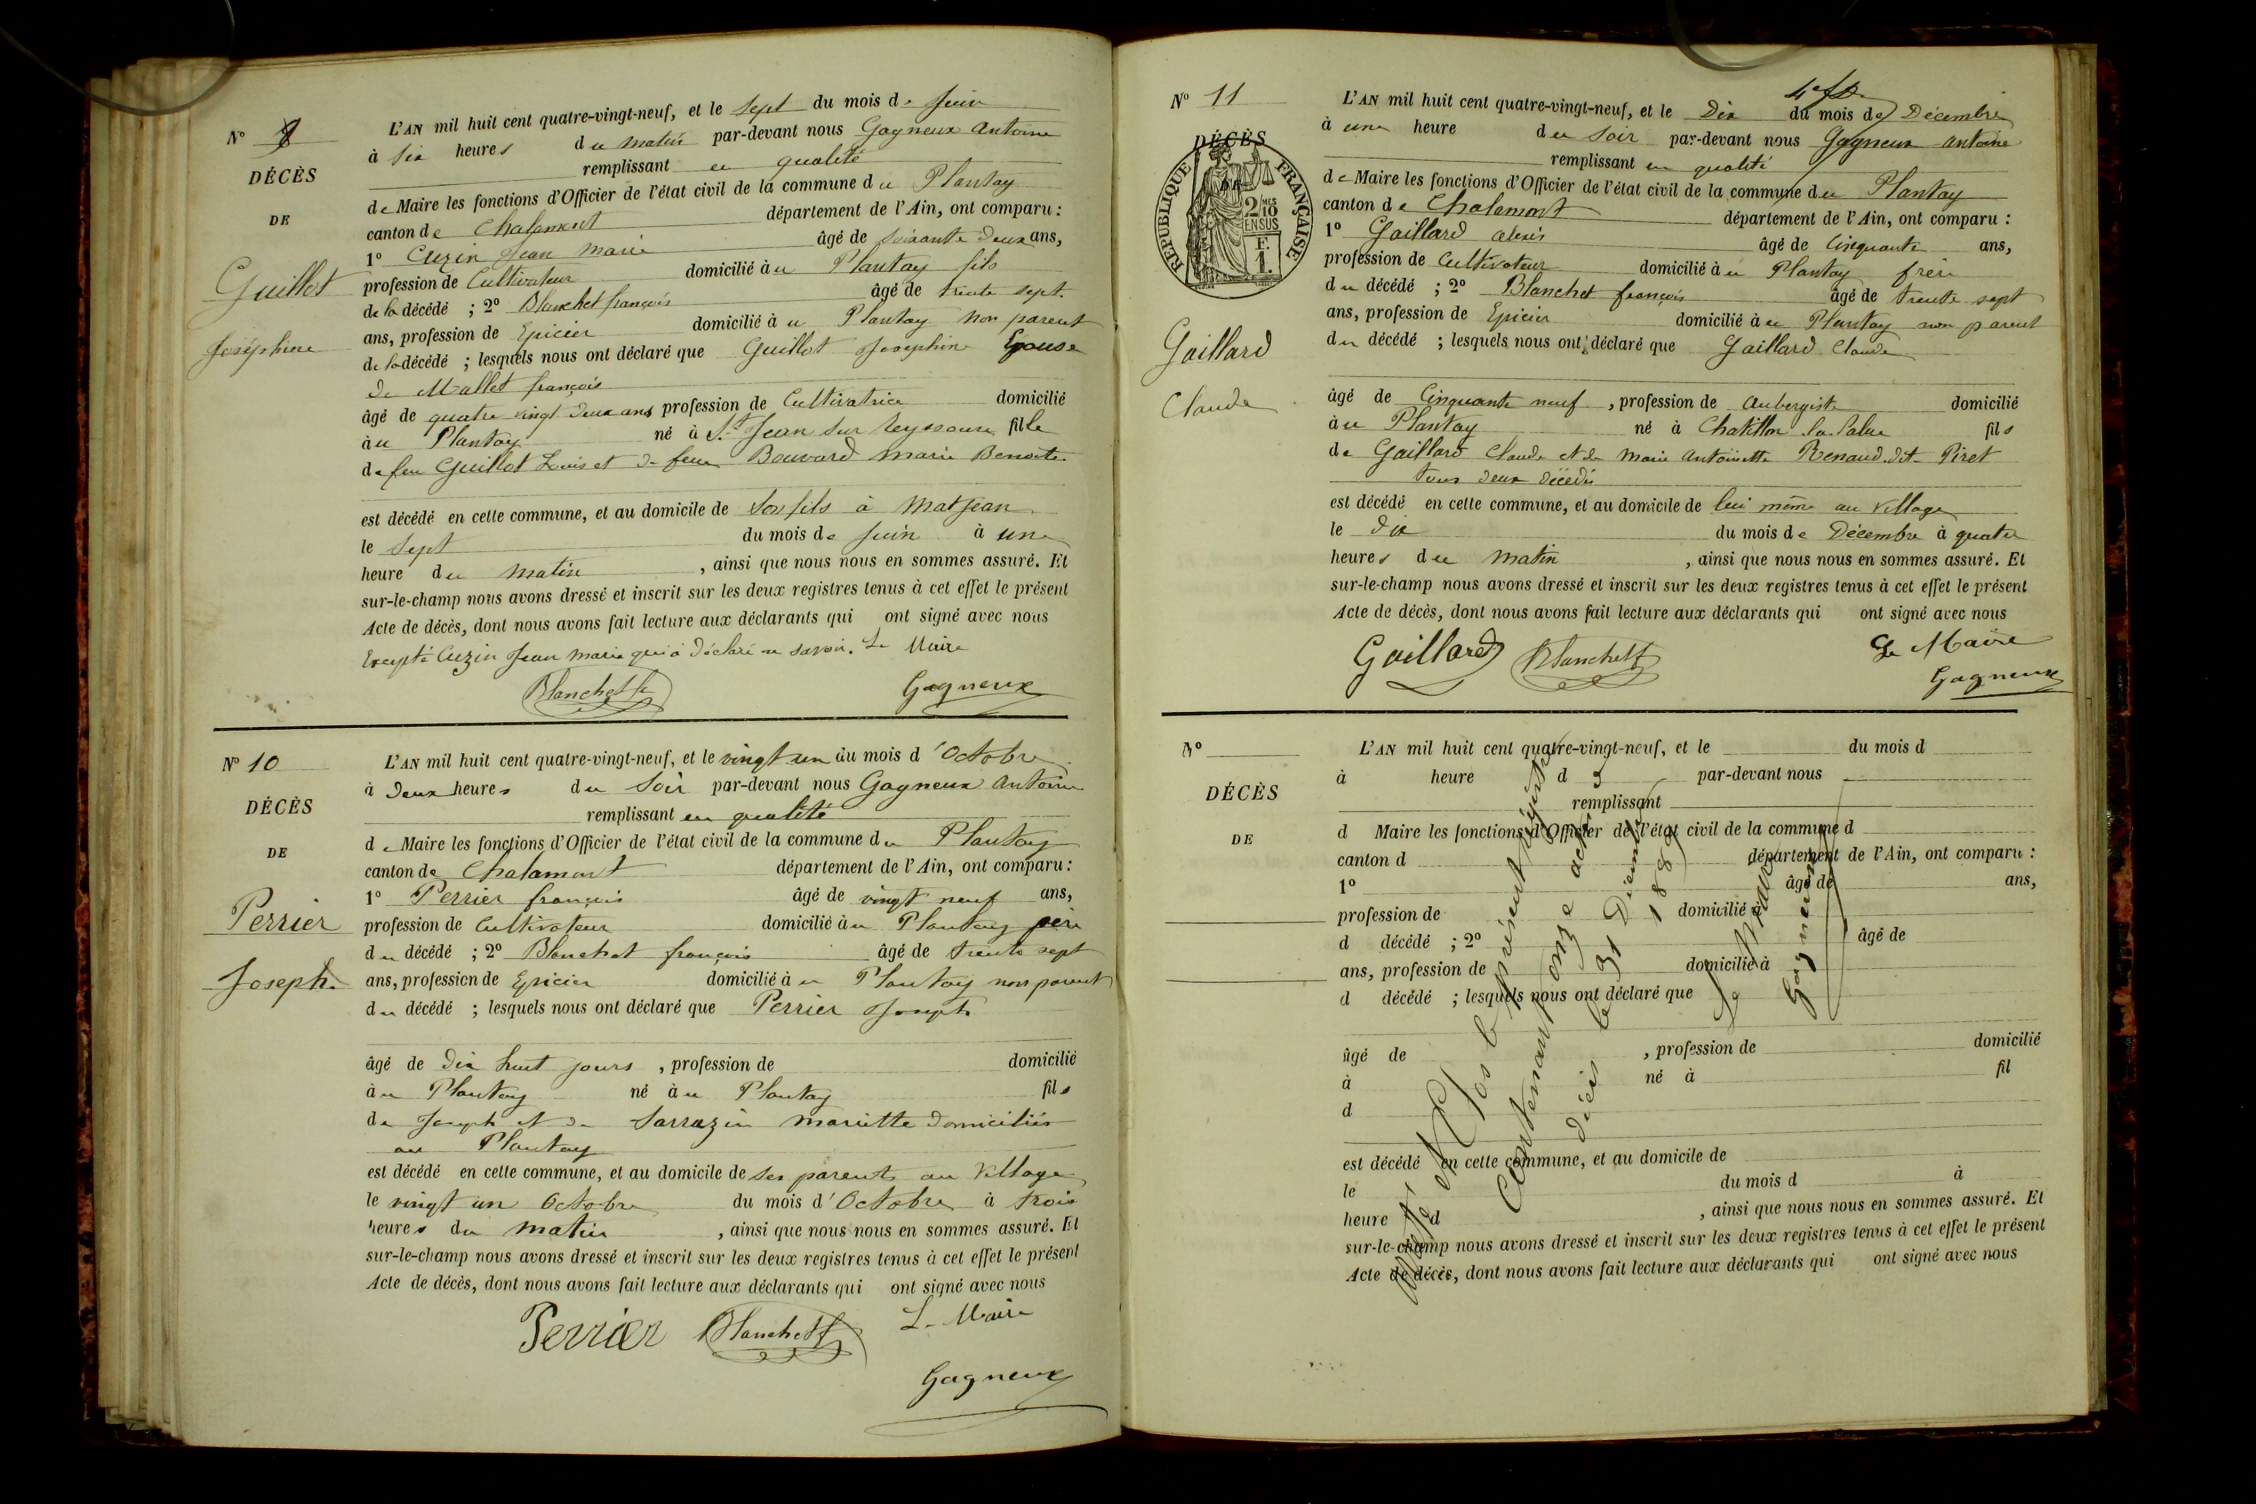 N° 9
DÉCÈS
DE
Guillot
Joséphine
L'AN mil huit cent quatre-vingt-neuf, et le sept du mois de Juin
à six heures du matin par-devant nous Gagneux Antoine
remplissant en qualité
de Maire les fonctions d'Officier de l'état civil de la commune du Plantay
canton de Chalamont département de l'Ain, ont comparu :
1° Cuzin Jean Marie âgé de soixante deux ans,
profession de Cultivateur domicilié au Plantay fils
de la décédé ; 2° Blanchet françois âgé de trente sept
ans, profession de Epicier domicilié au Plantay non parent
de la décédé ; lesquels nous ont déclaré que Guillot Josephine Epouse
de Mallet françois
âgé de quatre vingt deux ans profession de Cultivatrice domicilié
au Plantay né à St Jean sur Reyssouze fille
de feu Guillot Louis et de feue Bouvard Marie Benoite
est décédé en cette commune, et au domicile de son fils à Matjean
le sept du mois de Juin à une
heure du matin , ainsi que nous nous en sommes assuré. Et
sur-le-champ nous avons dressé et inscrit sur les deux registres tenus à cet effet le présent
Acte de décès, dont nous avons fait lecture aux déclarants qui ont signé avec nous
Excepté Cuzin Jean Marie qui a déclaré ne savoir. Le Maire
Blanchet f
Gagneux
N° 10
DÉCÈS
DE
Perrier
Joseph
L'AN mil huit cent quatre-vingt-neuf, et le vingt un du mois d'Octobre
à deux heures du soir par-devant nous Gagneux Antoine
remplissant en qualité
de Maire les fonctions d'Officier de l'état civil de la commune du Plantay
canton de Chalamont département de l'Ain, ont comparu :
1° Perrier françois âgé de vingt neuf ans,
profession de Cultivateur domicilié au Plantay père
du décédé ; 2° Blanchet françois âgé de trente sept
ans, profession de Epicier domicilié au Plantay non parent
du décédé ; lesquels nous ont déclaré que Perrier Joseph
âgé de dix huit jours , profession de domicilié
au Plantay né au Plantay fils
de Joseph et de Sarrazin Mariette domiciliés
au Plantay
est décédé en cette commune, et au domicile de ses parents au Village
le vingt un Octobre du mois d'Octobre à trois
heures du matin , ainsi que nous nous en sommes assuré. Et
sur-le-champ nous avons dressé et inscrit sur les deux registres tenus à cet effet le présent
Acte de décès, dont nous avons fait lecture aux déclarants qui ont signé avec nous
Perrier
Blanchet f
Le Maire
Gagneux
N° 11
DÉCÈS
RÉPUBLIQUE FRANÇAISE
2/10 MES
EN SUS
F.
1.
Gaillard
Claude
L'AN mil huit cent quatre-vingt-neuf, et le Dix du mois de Décembre
à une heure du soir par-devant nous Gagneux Antoine
remplissant en qualité
de Maire les fonctions d'Officier de l'état civil de la commune du Plantay
canton de Chalamont département de l'Ain, ont comparu :
1° Gaillard alexis âgé de Cinquante ans,
profession de Cultivateur domicilié au Plantay frère
du décédé ; 2° Blanchet françois âgé de trente sept
ans, profession de Epicier domicilié au Plantay non parent
du décédé ; lesquels nous ont déclaré que Gaillard Claude
âgé de Cinquante neuf , profession de Aubergiste domicilié
au Plantay né à Chatillon la Palue fils
de Gaillard Claude et de Marie Antoinette Renaud dit Piret
tous deux décédés
est décédé en cette commune, et au domicile de lui même au Village
le dix du mois de Décembre à quatre
heures du matin , ainsi que nous nous en sommes assuré. Et
sur-le-champ nous avons dressé et inscrit sur les deux registres tenus à cet effet le présent
Acte de décès, dont nous avons fait lecture aux déclarants qui ont signé avec nous
Gaillard
Blanchet f
Le Maire
Gagneux
N°
DÉCÈS
DE
L'AN mil huit cent quatre-vingt-neuf, et le du mois d
à heure d par-devant nous
remplissant
d Maire les fonctions d'Officier de l'état civil de la commune d
canton d département de l'Ain, ont comparu :
1° âgé de ans,
profession de domicilié à
d décédé ; 2° âgé de
ans, profession de domicilié à
d décédé ; lesquels nous ont déclaré que
âgé de , profession de domicilié
à né à fil
d
est décédé en cette commune, et au domicile de
le du mois d à
heure d , ainsi que nous nous en sommes assuré. Et
sur-le-champ nous avons dressé et inscrit sur les deux registres tenus à cet effet le présent
Acte de décès, dont nous avons fait lecture aux déclarants qui ont signé avec nous
Arrêté et Clos le présent régistre
Contenant onze actes
décès le 31 Décembre 1889
Le Maire
Gagneux